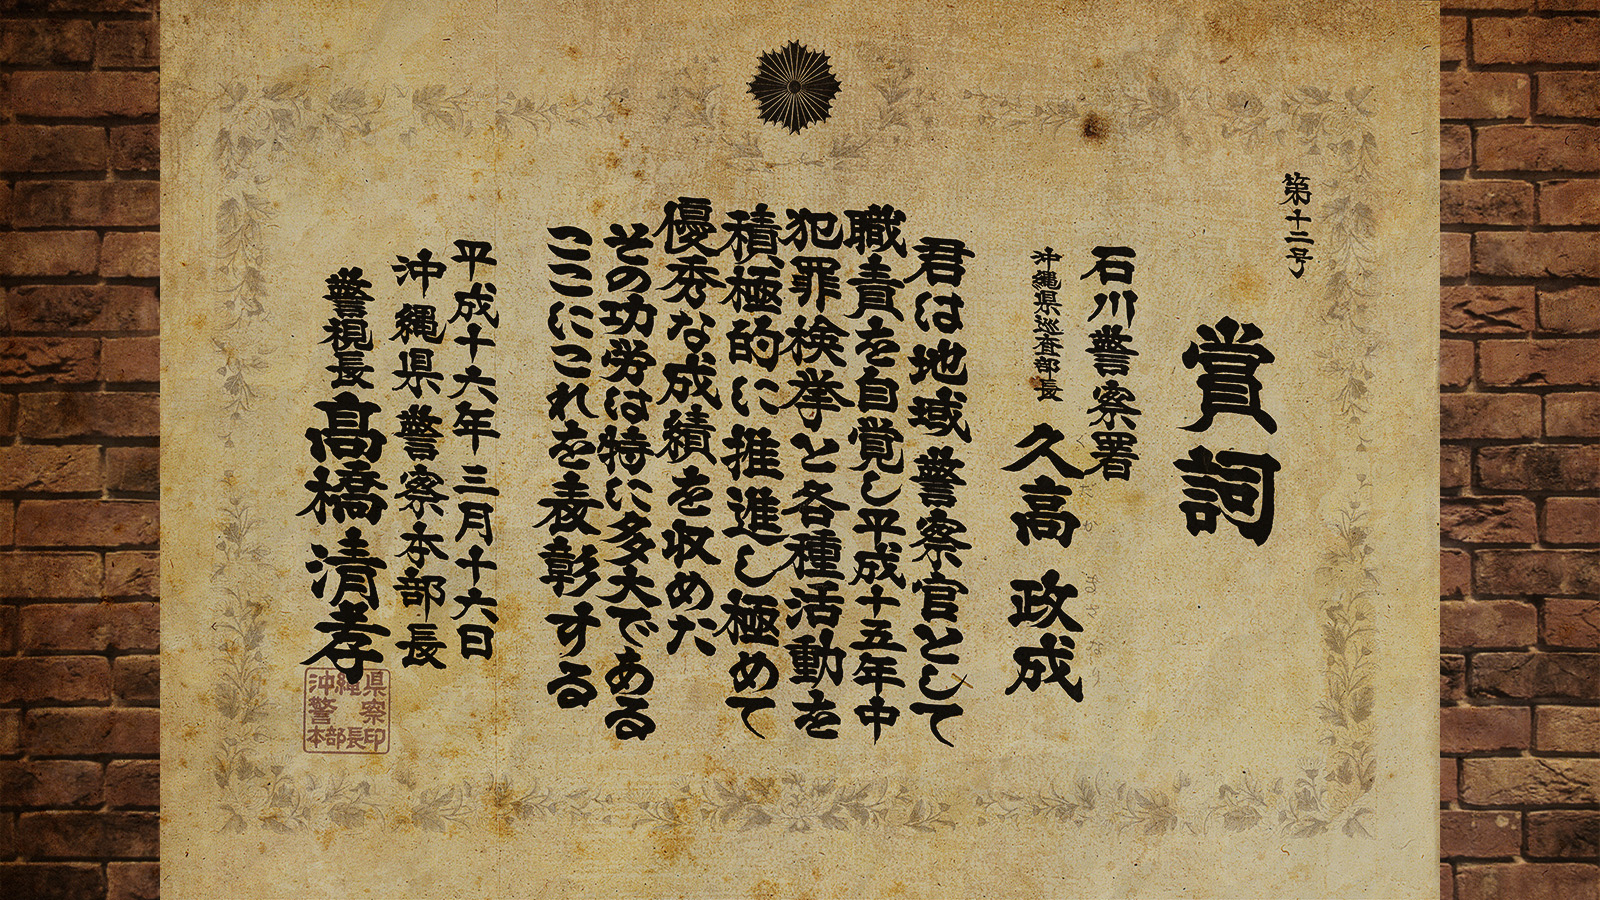 第十二号
賞詞
石川警察署
沖縄県巡査部長
久高 政成
く だか まさなり
君は地域警察官として
職責を自覚し平成十五年中
犯罪検挙と各種活動を
積極的に推進し極めて
優秀な成績を収めた
その功労は特に多大である
ここにこれを表彰する
平成十六年三月十六日
沖縄県警察本部長
警視長 髙橋清孝
沖縄県
警察
本部長印